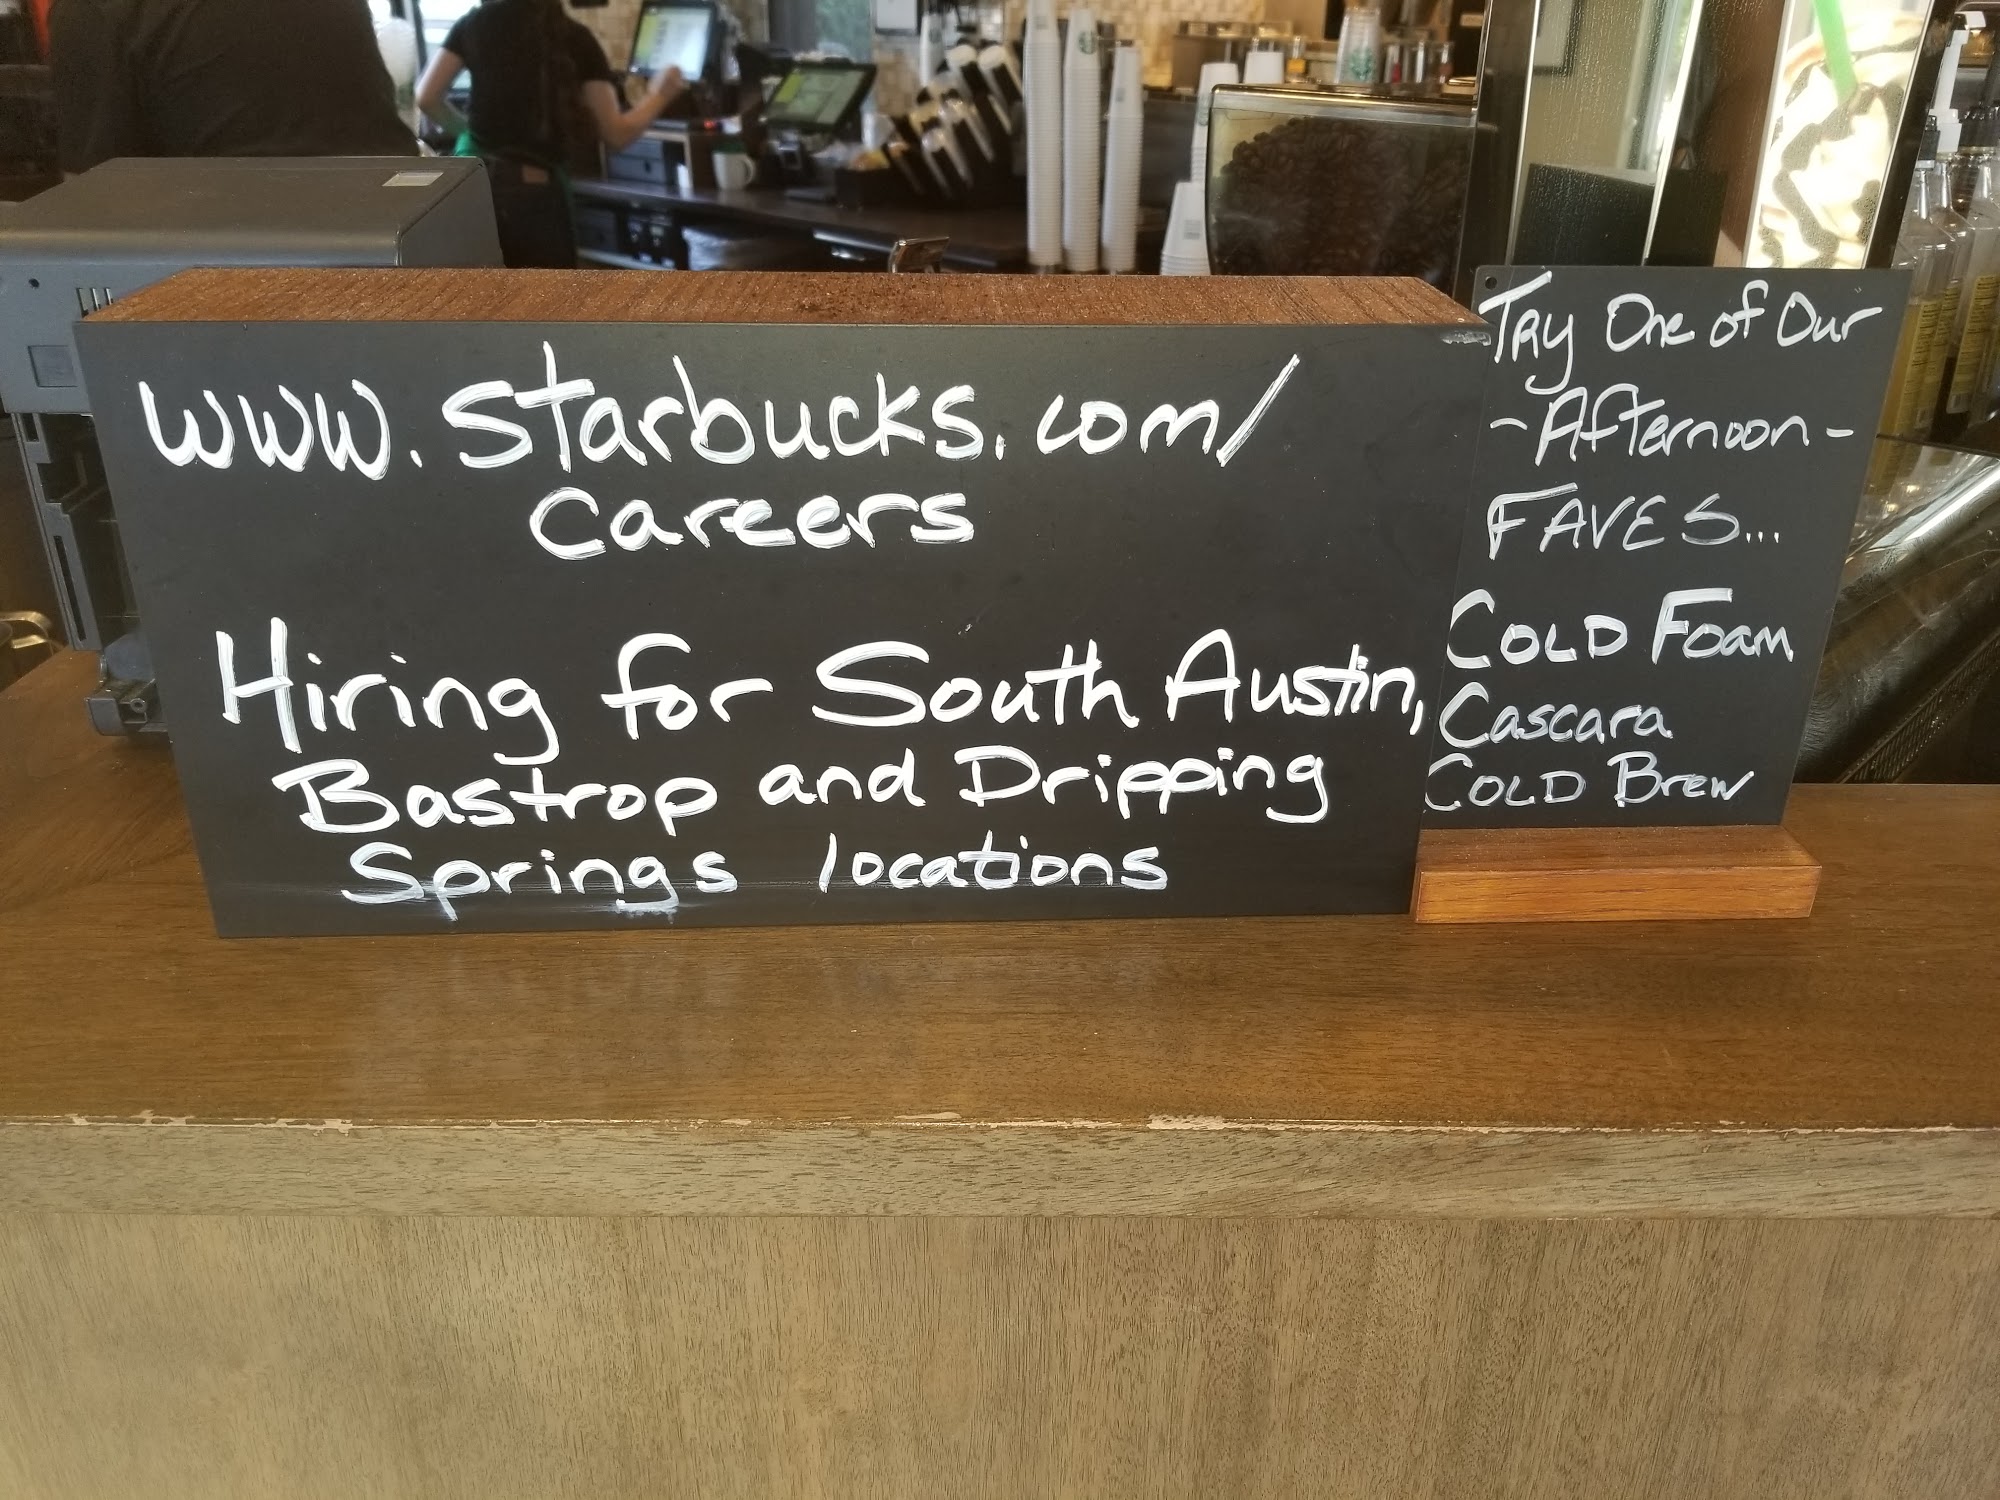 www.starbucks.com/
careers
Hiring for South Austin,
Bastrop and Dripping
Springs locations
Try One of Our
-Afternoon-
FAVES...
COLD FOAM
Cascara
COLD BREW